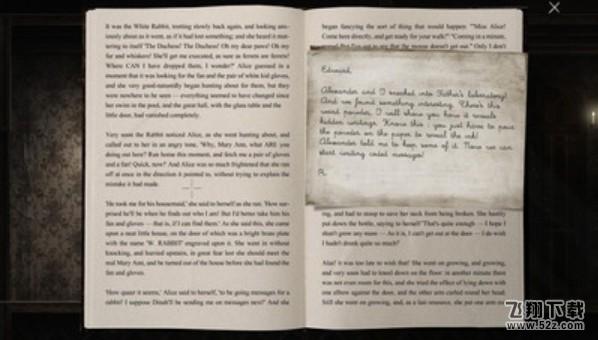 It was the White Rabbit, trotting slowly back again, and looking anx-
iously about as it went, as if it had lost something; and she heard it mut-
tering to itself 'The Duchess! The Duchess! Oh my dear paws! Oh my
fur and whiskers! She'll get me executed, as sure as ferrets are ferrets!
Where CAN I have dropped them, I wonder?' Alice guessed in a
moment that it was looking for the fan and the pair of white kid gloves,
and she very good-naturedly began hunting about for them, but they
were nowhere to be seen — everything seemed to have changed since
her swim in the pool, and the great hall, with the glass table and the
little door, had vanished completely.
Very soon the Rabbit noticed Alice, as she went hunting about, and
called out to her in an angry tone, 'Why, Mary Ann, what ARE you
doing out here? Run home this moment, and fetch me a pair of gloves
and a fan! Quick, now!' And Alice was so much frightened that she ran
off at once in the direction it pointed to, without trying to explain the
mistake it had made.
'He took me for his housemaid,' she said to herself as she ran. 'How sur-
prised he'll be when he finds out who I am! But I'd better take him his
fan and gloves — that is, if I can find them.' As she said this, she came
upon a neat little house, on the door of which was a bright brass plate
with the name 'W. RABBIT' engraved upon it. She went in without
knocking, and hurried upstairs, in great fear lest she should meet the
real Mary Ann, and be turned out of the house before she had found the
fan and gloves.
'How queer it seems,' Alice said to herself, 'to be going messages for a
rabbit! I suppose Dinah'll be sending me on messages next!' And she
began fancying the sort of thing that would happen: '"Miss Alice!
Come here directly, and get ready for your walk!" "Coming in a minute,
nurse! But I've got to see that the mouse doesn't get out." Only I don't
Edward,
Alexander and I sneaked into Father's laboratory!
And we found something interesting. There's this
weird powder, I will show you how it reveals
hidden writings. Know this : you just have to pour
the powder on the paper to reveal the ink!
Alexander told me to keep some of it. Now we can
start writing coded messages!
R.
ing, and had to stoop to save her neck from being broken. She hastily
put down the bottle, saying to herself 'That's quite enough — I hope I
shan't grow any more — As it is, I can't get out at the door — I do wish
I hadn't drunk quite so much!'
Alas! it was too late to wish that! She went on growing, and growing,
and very soon had to kneel down on the floor: in another minute there
was not even room for this, and she tried the effect of lying down with
one elbow against the door, and the other arm curled round her head.
Still she went on growing, and, as a last resource, she put one arm out
飞翔下载
www.52z.com